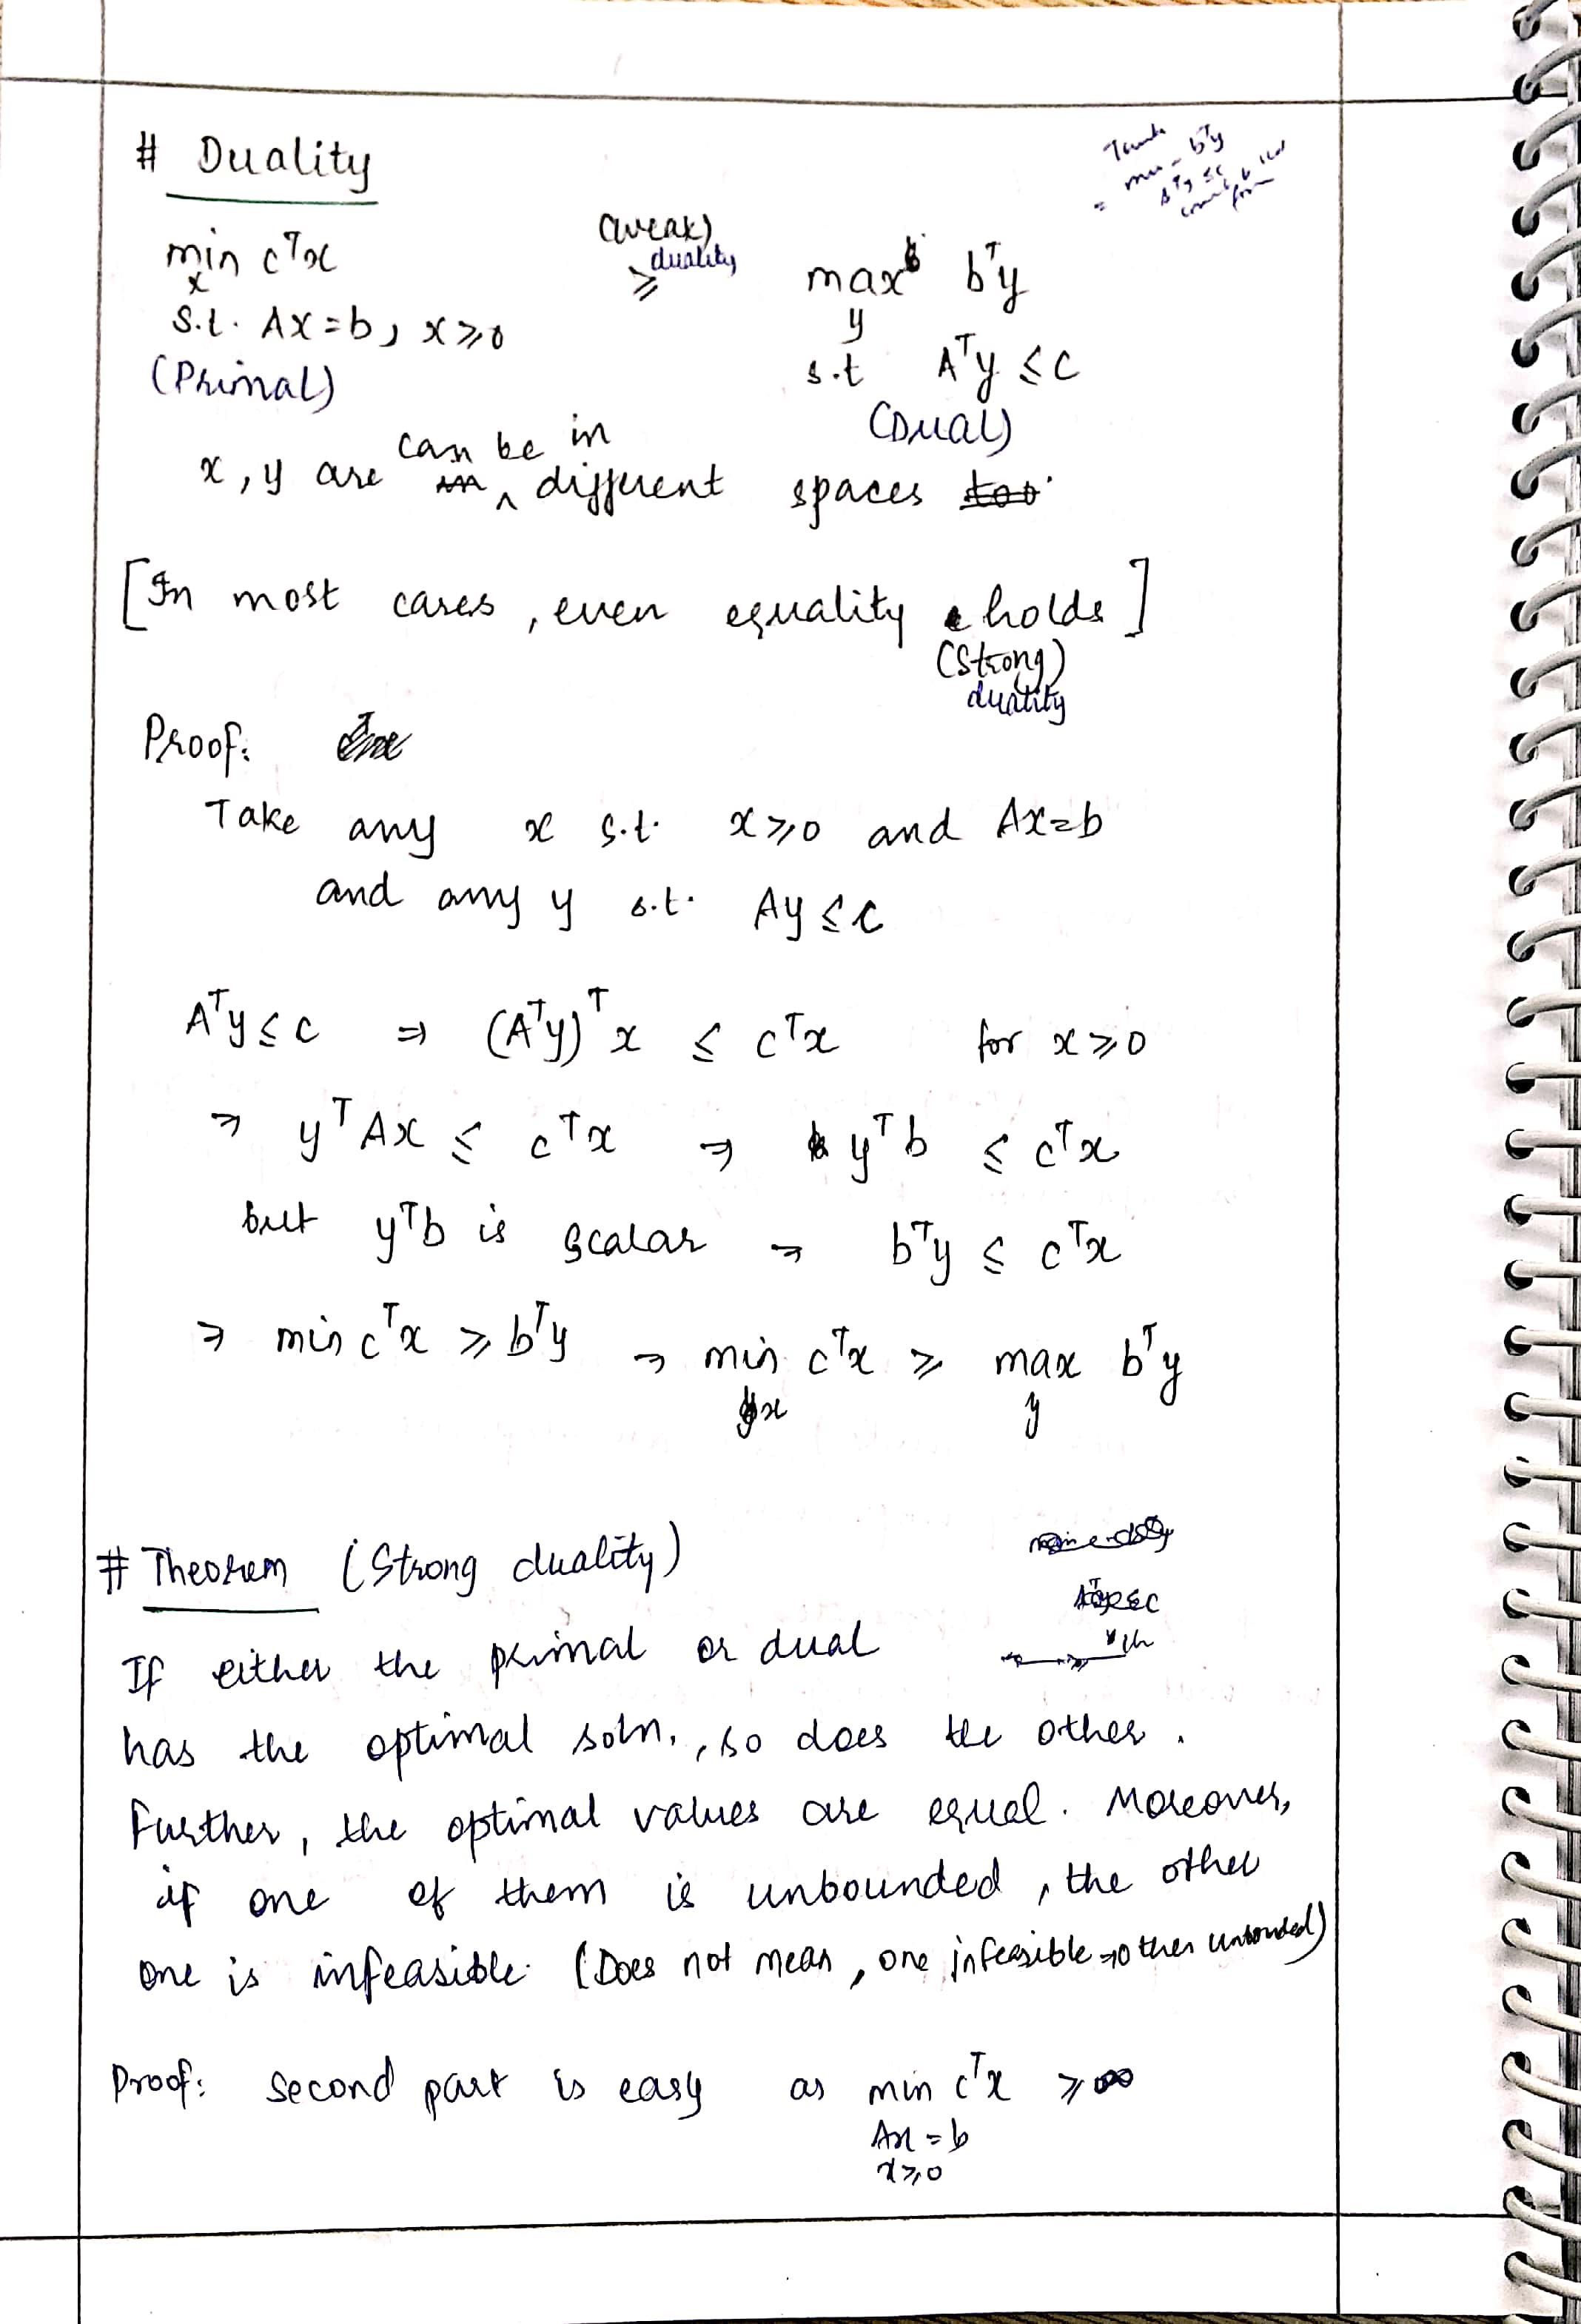 # Duality
min cᵀx
x
s.t. Ax=b, x⩾0
(Primal)
(weak)
duality
⩾
max bᵀy
y
s.t Aᵀy ≤ c
(Dual)
x, y are can be in different spaces
[In most cases, even equality holds]
(Strong)
duality
Proof:
Take any x s.t. x⩾0 and Ax=b
and any y s.t. Ay ≤ c
Aᵀy ≤ c ⇒ (Aᵀy)ᵀx ≤ cᵀx for x⩾0
⇒ yᵀAx ≤ cᵀx ⇒ yᵀb ≤ cᵀx
but yᵀb is scalar ⇒ bᵀy ≤ cᵀx
⇒ min cᵀx ⩾ bᵀy ⇒ min cᵀx ⩾ max bᵀy
x y
# Theorem (Strong duality)
If either the primal or dual
has the optimal soln., so does the other.
Further, the optimal values are equal. Moreover,
if one of them is unbounded, the other
one is infeasible. (Does not mean, one infeasible ⇒ other unbounded)
Proof: Second part is easy as min cᵀx ⩾ ∞
Ax = b
x⩾0